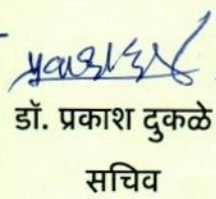 डॉ. प्रकाश दुकळे
सचिव